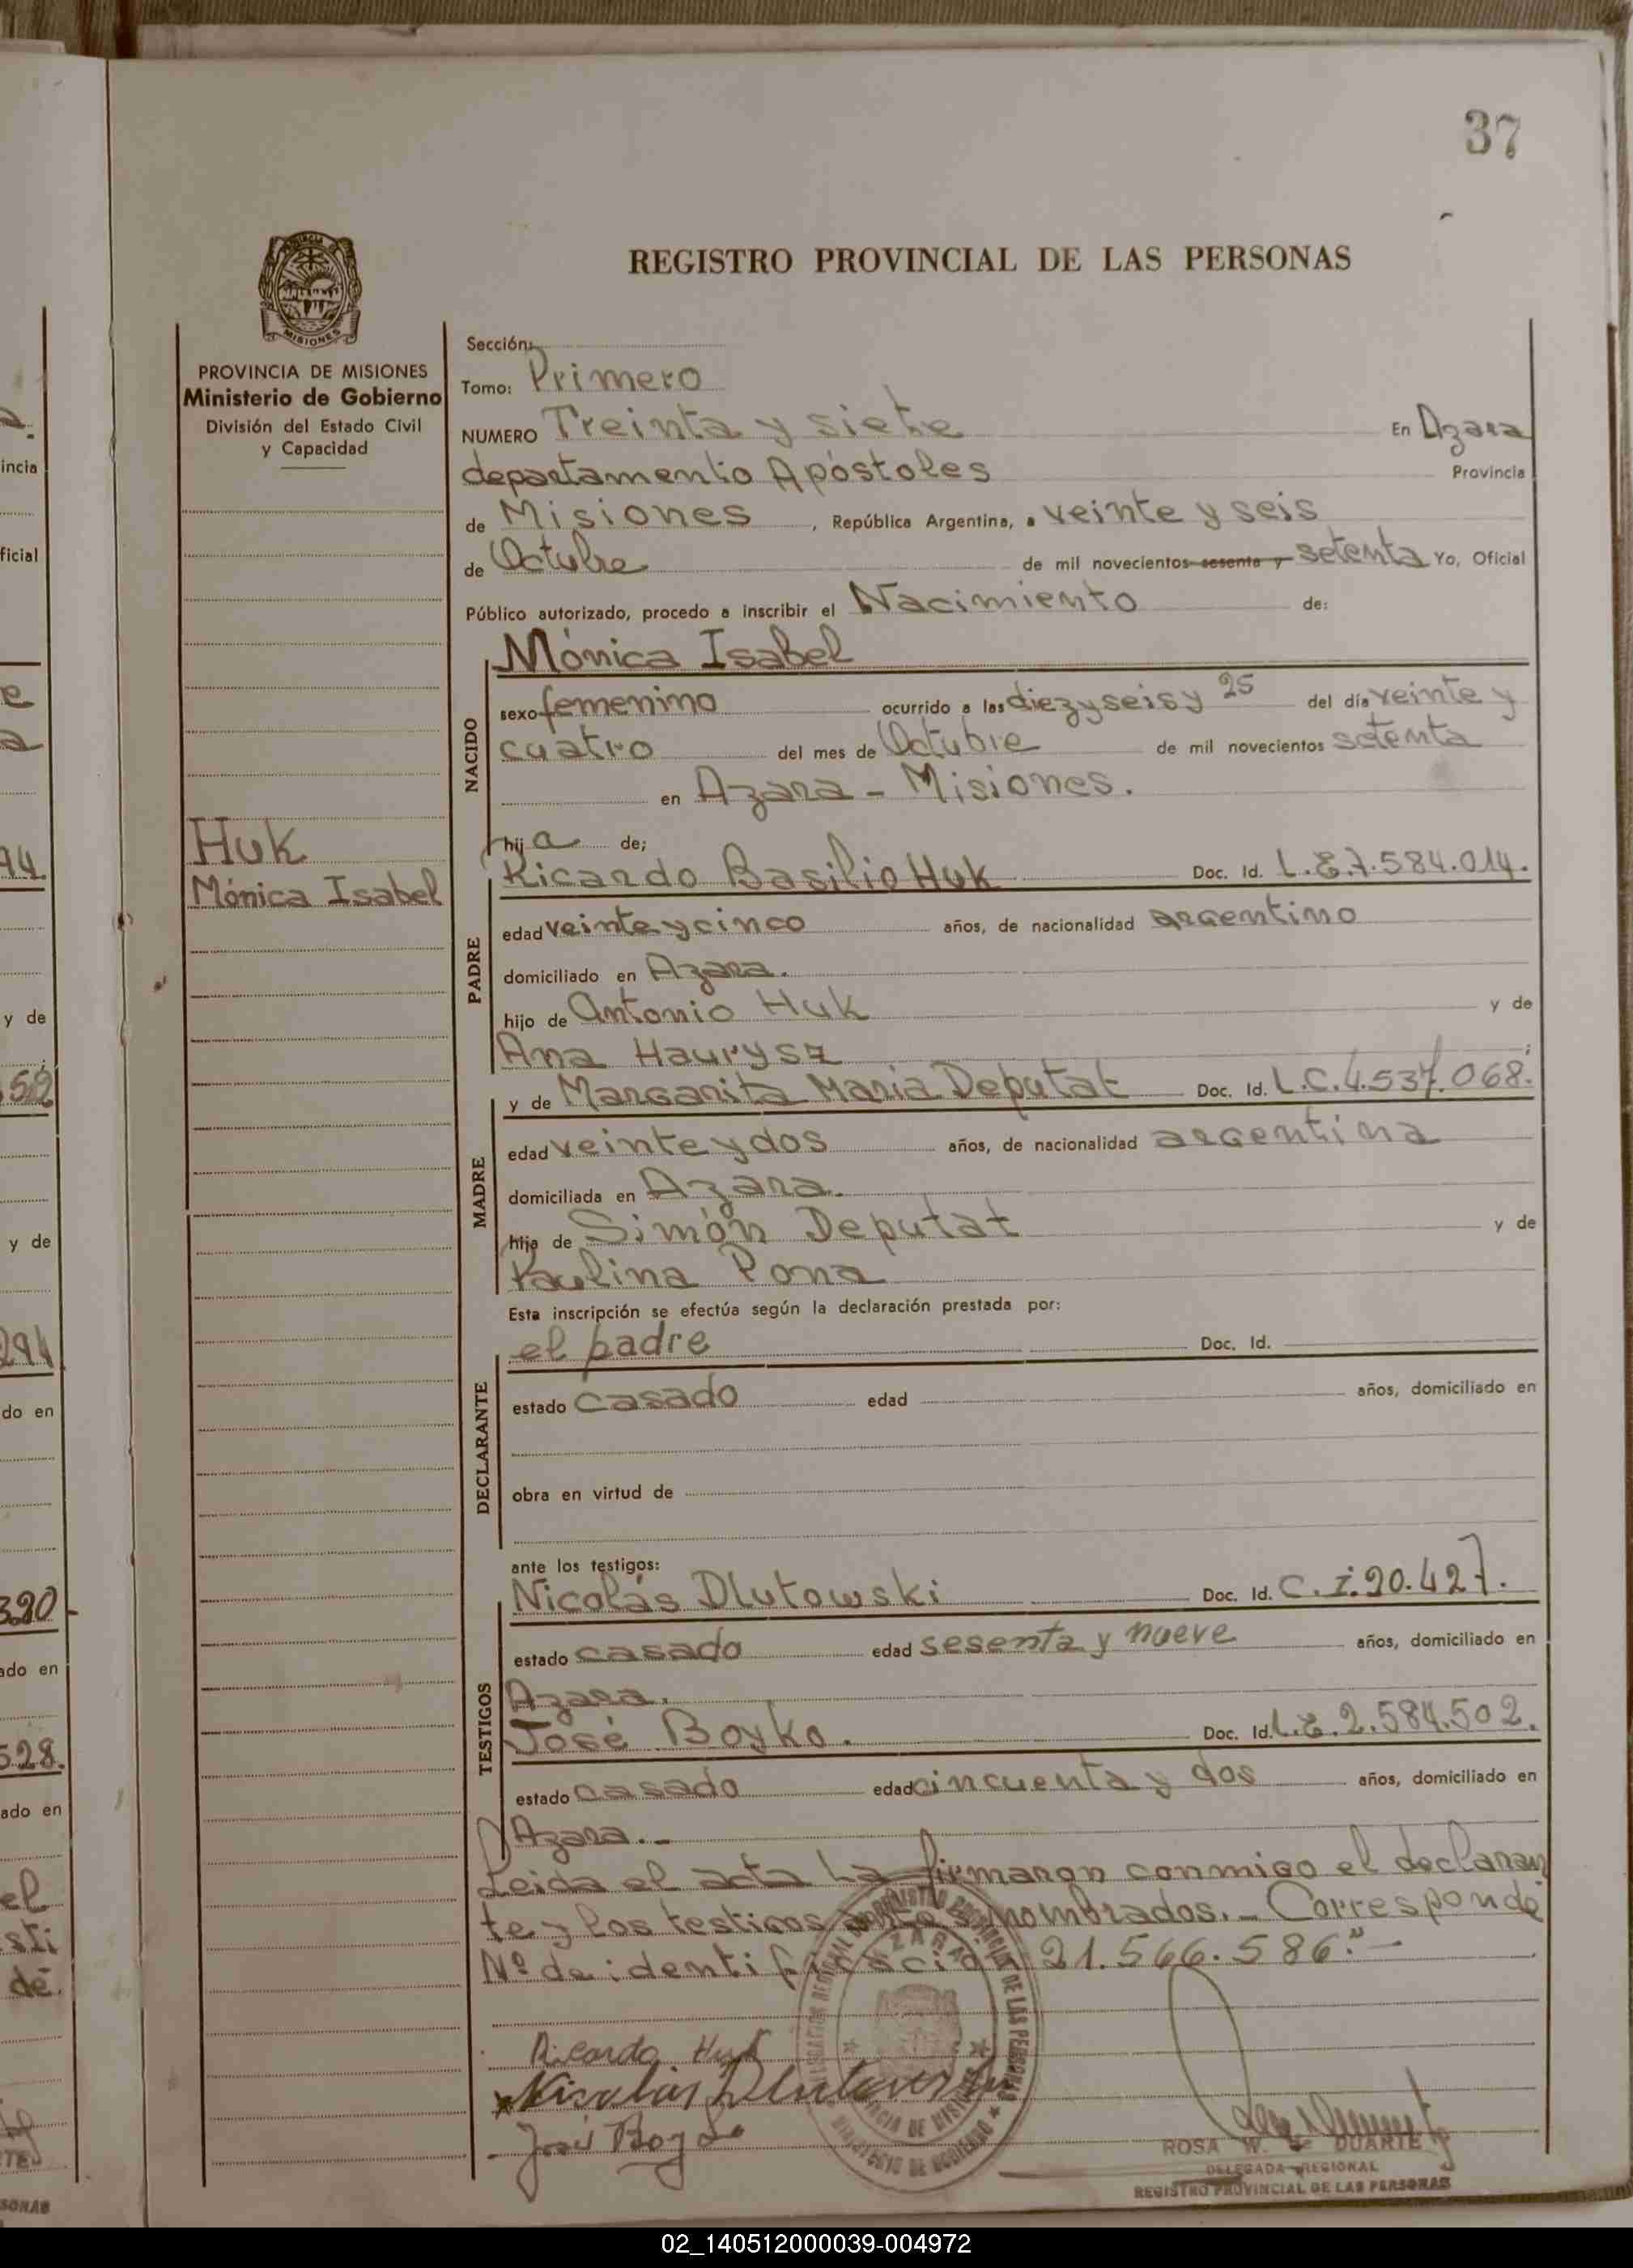 37
REGISTRO PROVINCIAL DE LAS PERSONAS
MISIONES
PROVINCIA DE MISIONES
Ministerio de Gobierno
División del Estado Civil
y Capacidad
Huk
Mónica Isabel
Sección:
Tomo: Primero
NUMERO Treinta y siete En Azara
departamento Apóstoles Provincia
de Misiones, República Argentina, a veinte y seis
de Octubre de mil novecientos sesenta y setenta Yo, Oficial
Público autorizado, procedo a inscribir el Nacimiento de:
NACIDO
Mónica Isabel
sexo femenino ocurrido a las diez y seis y 25 del día veinte y
cuatro del mes de Octubre de mil novecientos setenta
en Azara - Misiones.
hija de;
PADRE
Ricardo Basilio Huk Doc. Id. L.E.7.584.014.
edad veinte y cinco años, de nacionalidad argentino
domiciliado en Azara.
hijo de Antonio Huk y de
Ana Haurysz ;
MADRE
y de Margarita Maria Deputat Doc. Id. L.C.4.537.068.
edad veinte y dos años, de nacionalidad argentina
domiciliada en Azara.
hija de Simón Deputat y de
Paulina Pona
Esta inscripción se efectúa según la declaración prestada por:
DECLARANTE
el padre Doc. Id.
estado casado edad años, domiciliado en
obra en virtud de
ante los testigos:
TESTIGOS
Nicolás Dlutowski Doc. Id. C.I.90.427.
estado casado edad sesenta y nueve años, domiciliado en
Azara.
José Boyko. Doc. Id. L.E.2.584.502.
estado casado edad cincuenta y dos años, domiciliado en
Azara.-
Leida el acta la firmaron conmigo el declaran
te y los testigos nombrados.- Corresponde
Nº de identificación 21.566.586."-
Ricardo Huk
Nicolás Dlutowski
José Boyko
ROSA W. DE DUARTE
DELEGADA REGIONAL
REGISTRO PROVINCIAL DE LAS PERSONAS
02_140512000039-004972